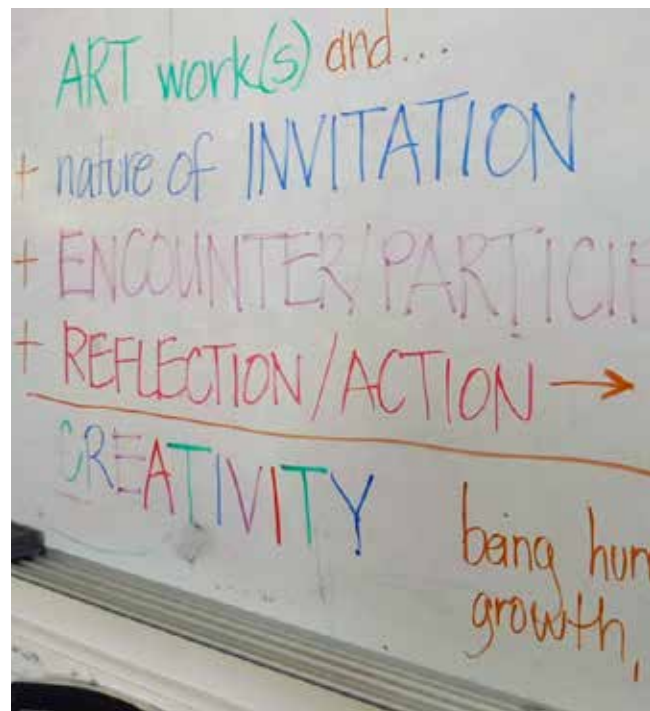 ART work(s) and...
+ nature of INVITATION
+ ENCOUNTER/PARTICIP
+ REFLECTION/ACTION →
CREATIVITY
being hum
growth,